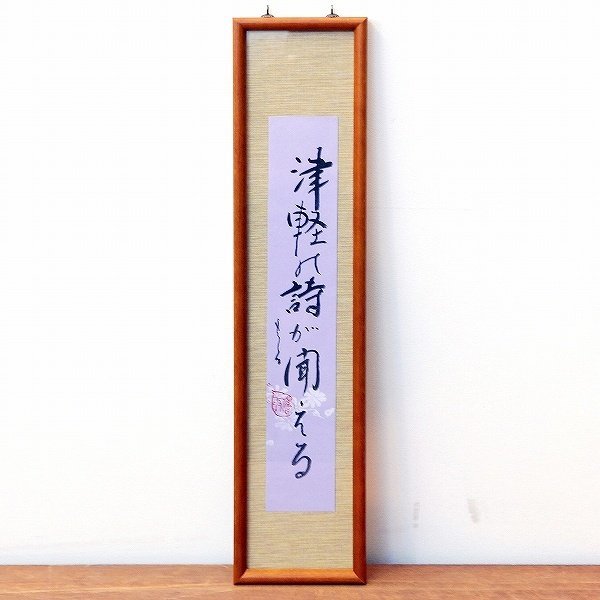 津軽の詩が聞こえる